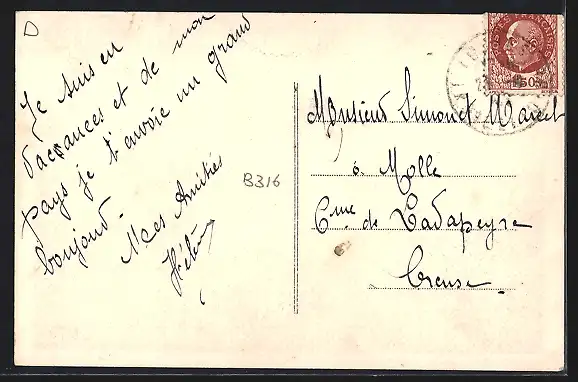 D
Je suis en
vacances et de mon
pays je t'envoie un grand
boujour.
Mes Amitiés
Hélène
B316
POSTES FRANCAISES
1F50
Monsieur Simonet Marcel
à Molle
Cne de Ladapeyre
Creuse